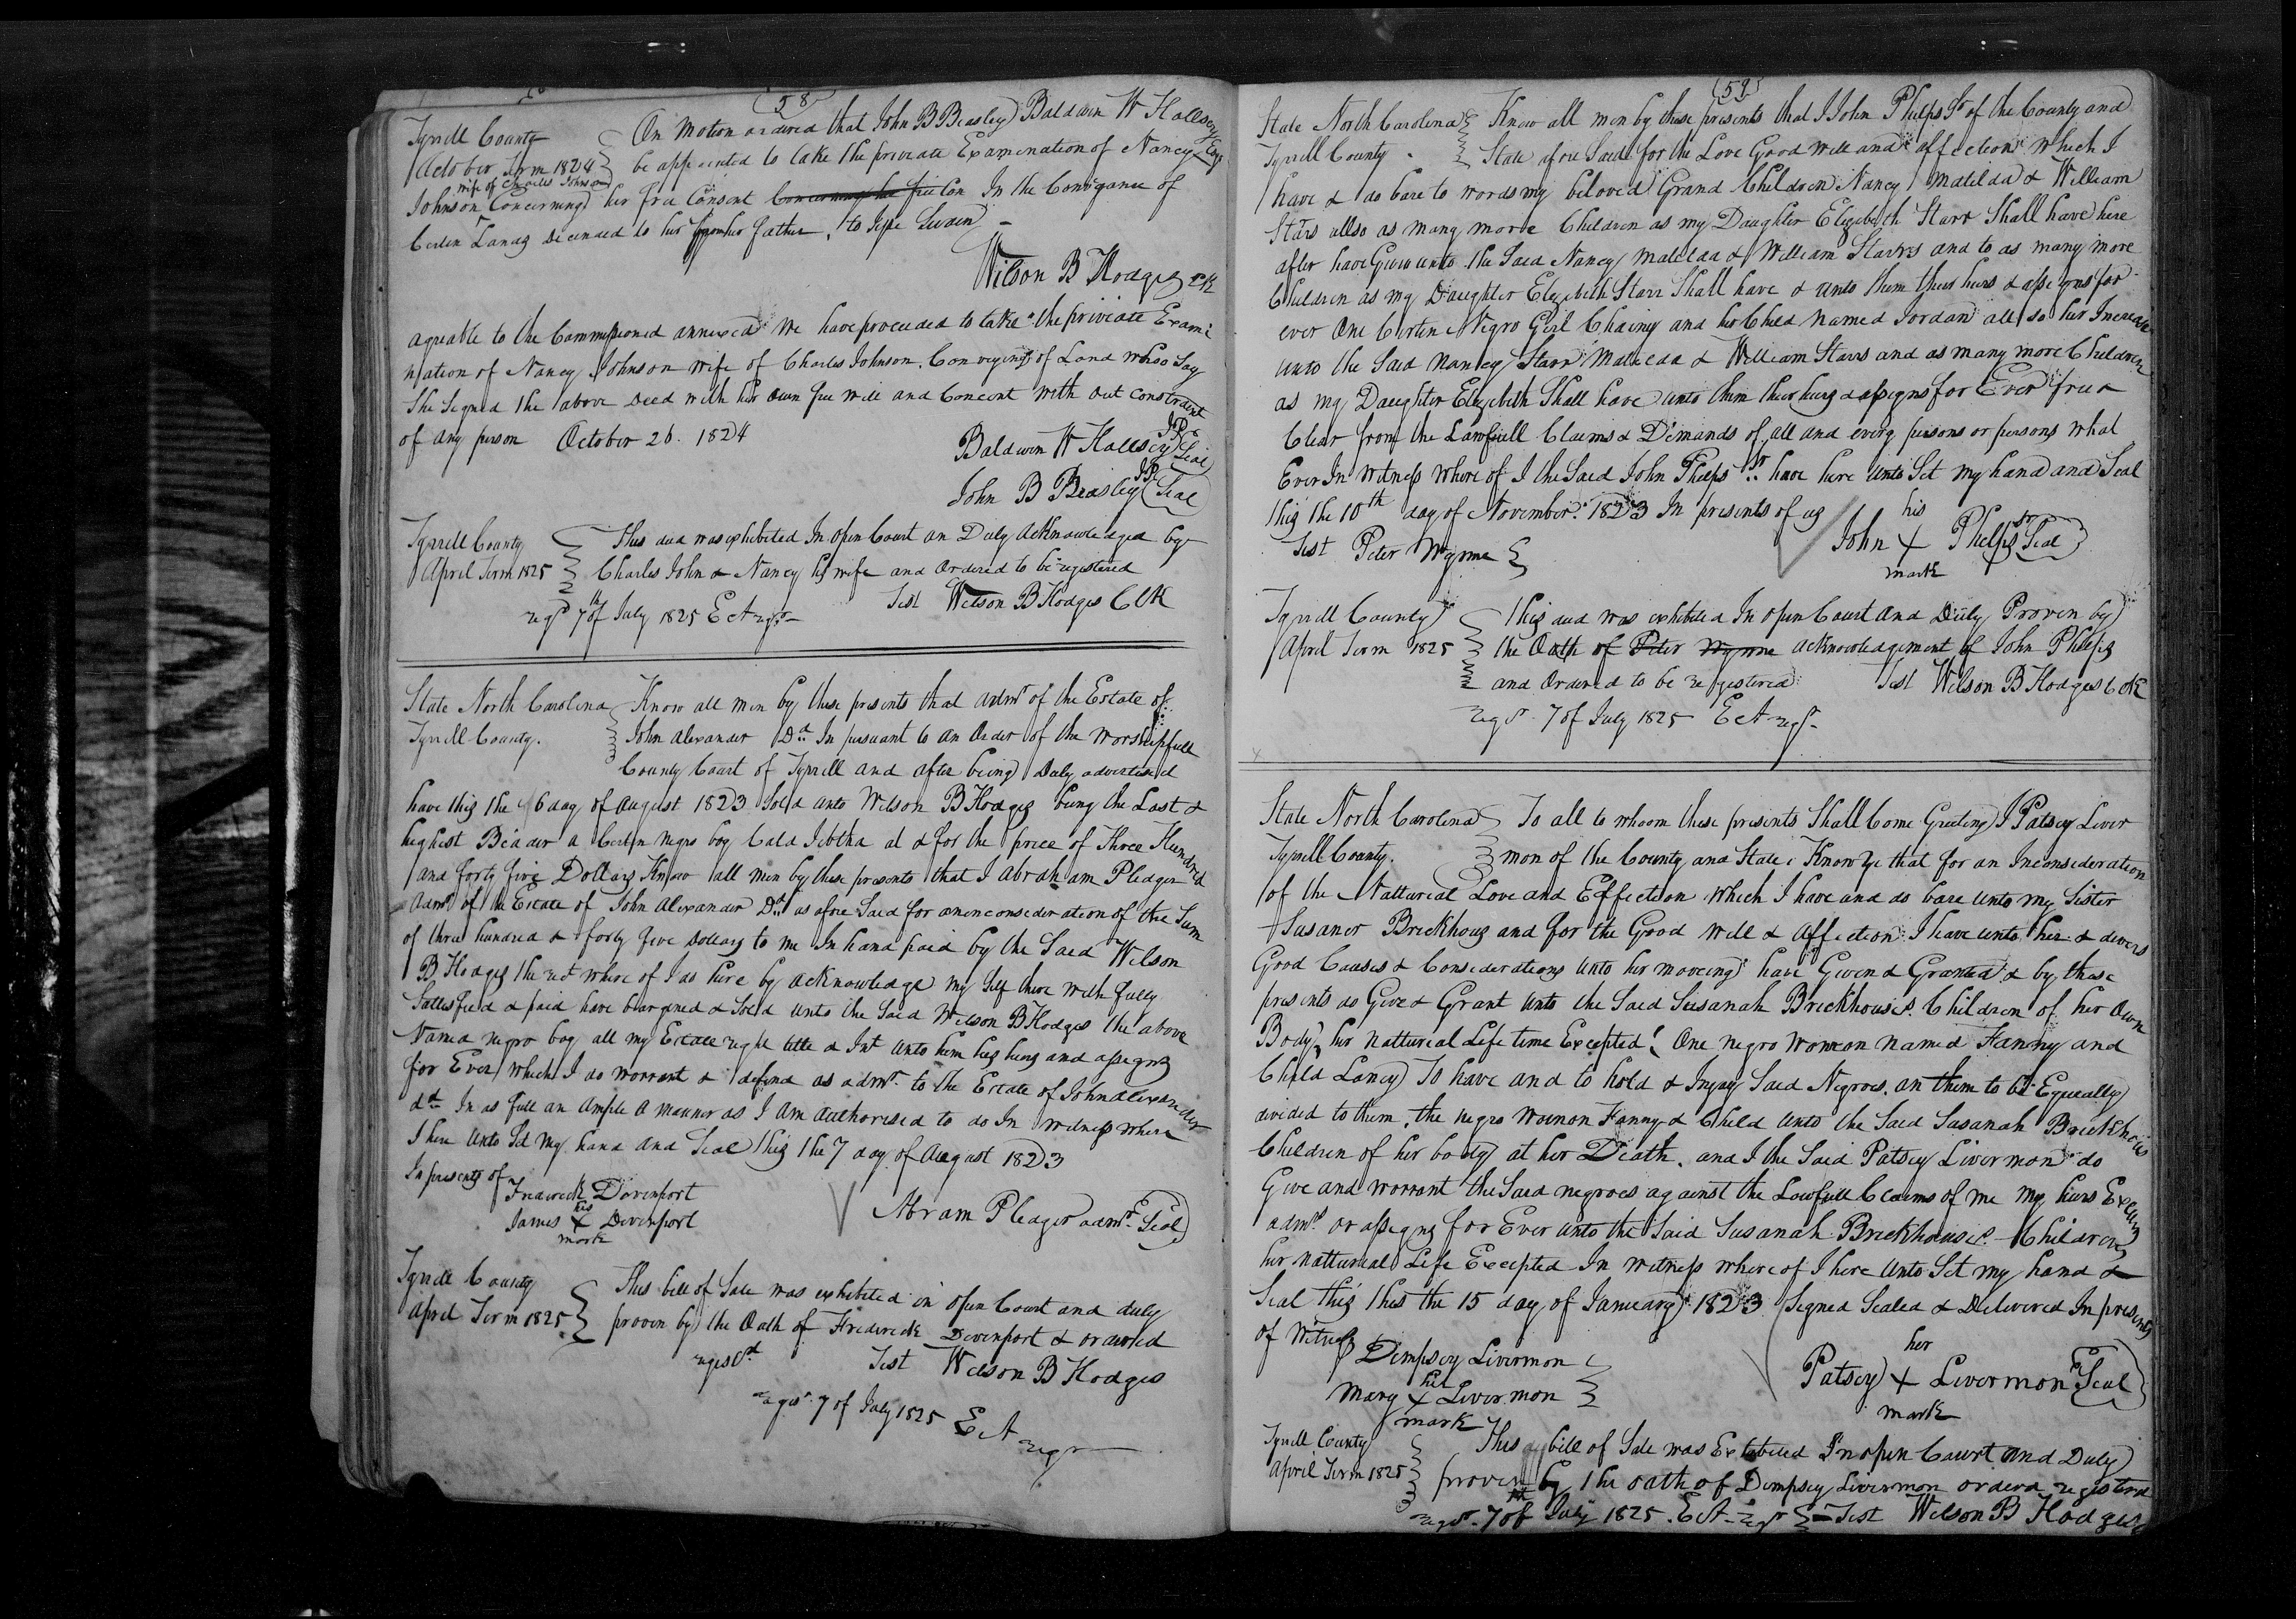 (58)
Tyrrell County On Motion ordered that John B Beasley Baldwin W Hallsey Esqr
October Term 1824 be appointed to take the priveate Examenation of Nancy
wife of Charles Johnson
Johnson Concerning her free Consent Concerning her free Con In the Conviganse of
Certen Lands decended to her from her father, to Jesse Swain
Wilson B Hodges Clk
agreable to the Commissioned annexed We have proceeded to take the priveate Exami
nation of Nancy Johnson wife of Charles Johnson. Conveying of Land whoo Say
She Signed the above Deed with her own free will and Concent with out constraint
of any person October 26. 1824
Baldwin W Hallsey JP Seal
John B Beasley JP Seal
Tyrrell County This deed was exhibited In open Court an Duly acknowledged by
April Term 1825 Charles John & Nancy his wife and Ordered to be registered
regd 7th of July 1825 E A regr Test Wilson B Hodges Clk
State North Carolina Know all men by these presents that admr of the Estate of
Tyrrell County. John Alexander Dd In pursuant to an Order of the Worshipfull
County Court of Tyrrell and after being Duly advertised
have this the 6 day of August 1823 Sold unto Wilson B Hodges being the Last &
highest Bidder a Certin negro boy Cald Jebtha at & for the price of Three Hundred
and forty five Dollars Know all men by these presents that I Abraham Pledger
Admr of the Estate of John Alexander Dd as afore Said for an in consideration of the Sum
of three hundred & forty five Dollars to me In hand paid by the Said Wilson
B Hodges the rect where of I do here by acknowledge my Self there with fully
Sattesfied & paid have bargened & Sold unto the Said Wilson B Hodges the above
Named negro boy all my Estate right title & Int unto him his heirs and assigns
for Ever which I do warrant & defend as admr to the Estate of John Alexander
dd In as full an ample a manner as I am authorised to do In witness where
I here unto Set my hand and Seal this the 7 day of August 1823
In presents of
Frederick Davenport
James his X Devenport
mark
Abram Pledger admr Seal
Tyrrell County This bill of Sale was exhibited in open Court and duly
April Term 1825 proven by the Oath of Frederick Devenport & ordered
regestd Test Wilson B Hodges
regr 7 of July 1825 E A regr
(59)
State North Carolina Know all men by these presents that I John Phelps Sr of the County and
Tyrrell County. State afore Said for the Love Good will and affection which I
have & do bare to words my beloved Grand Children Nancy Matilda & William
Stars allso as many more Children as my Daughter Elizebeth Starr Shall have here
after have Given unto the Said Nancy Matilda & William Starrs and to as many more
Children as my Daughter Elezebeth Starr Shall have & unto them their heirs & assigns for
ever One Certine Negro Girl Chainy and her Child named Jordan all so her Increase
unto the Said Nancy Starr Matilda & William Starrs and as many more Children
as my Daughter Elizebeth Shall have unto them their heirs & assigns for Ever free &
Clear from the Lawfull Claims & Demands of all and every persons or persons what
Ever In witness where of I the Said John Phelps Sr have here unto Set my hand and Seal
this the 10th day of November. 1823 In presents of us
his
Test Peter Wynne John X Phelps Sr Seal
mark
Tyrrell County this deed was exhibited In open Court and Duly Proven by
April Term 1825 the Oath of Peter Wynne acknowledgement of John Phelps
and Ordered to be registered Test Wilson B Hodges Clk
regr. 7 of July 1825 E A regr
State North Carolina To all to whoom these presents Shall Come Greeting I Patsey Liver
Tyrrell County. mon of the County and State Know ye that for an Inconsideration
of the Nattureal Love and Effection which I have and do bare unto my Sister
Susaner Brickhous and for the Good will & affection I have unto her & divers
Good Causes & Considerations unto her moveing have Given & Granted & by these
presents do Give & Grant unto the Said Susanah Brickhouses. Children of her Own
Body, her natturial Life time Excepted One negro womon named Fanny and
Child Laney To have and to hold & Injoy Said Negroes. an them to be Equeally
divided to them, the negro womon Fanny & Child unto the Said Susanah Brickhouses
Children of her body at her Death. and I the Said Patsey Livermon do
Give and warrant the Said negroes against the Lawfull Claims of me my heirs Excurs
admr. or assigns for Ever unto the Said Susanah Brickhouses. Children
her natturial Life Excepted In witness where of I here unto Set my hand &
Seal this this the 15 day of January 1823 Signed Sealed & Delivered In presents
of Witness
Dempsey Livermon
Mary her X Livermon
mark
her
Patsey X Livermon Seal
mark
Tyrrell County This bill of Sale was Exhibited In open Court and Duly
April Term 1825 proven by the oath of Dempsey Livermon orderd registerd
regr. 7th of July 1825. E A regr Test Wilson B Hodges